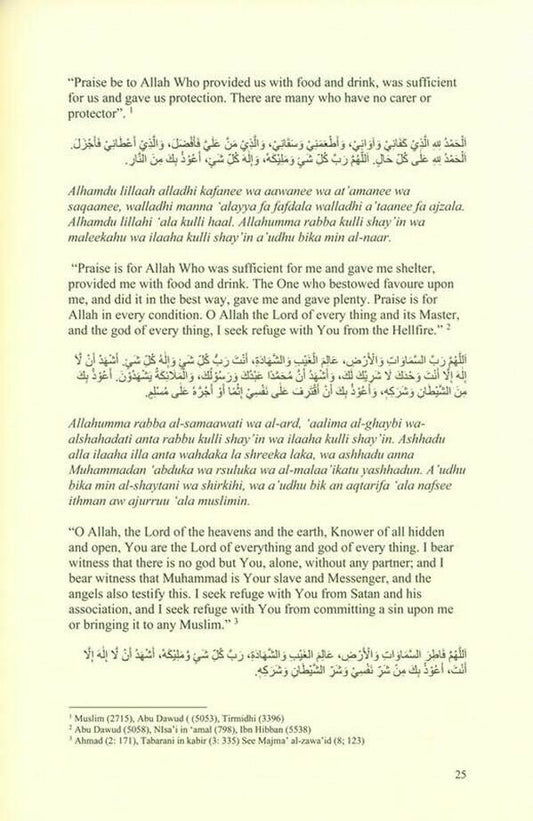 “Praise be to Allah Who provided us with food and drink, was sufficient
for us and gave us protection. There are many who have no carer or
protector”. 1
اَلْحَمْدُ لِلهِ الَّذِيْ كَفَانِيْ وَآوَانِيْ، وَأَطْعَمَنِيْ وَسَقَانِيْ، وَالَّذِيْ مَنَّ عَلَيَّ فَأَفْضَلَ، وَالَّذِيْ أَعْطَانِيْ فَأَجْزَلَ.
اَلْحَمْدُ لِلهِ عَلٰى كُلِّ حَالٍ. اَللّٰهُمَّ رَبَّ كُلِّ شَيْ وَمَلِيْكَهُ، وَإِلٰهَ كُلِّ شَيْ، أَعُوْذُ بِكَ مِنَ النَّارِ.
Alhamdu lillaah alladhi kafanee wa aawanee wa at’amanee wa
saqaanee, walladhi manna ‘alayya fa fafdala walladhi a’taanee fa ajzala.
Alhamdu lillahi ‘ala kulli haal. Allahumma rabba kulli shay’in wa
maleekahu wa ilaaha kulli shay’in a’udhu bika min al-naar.
“Praise is for Allah Who was sufficient for me and gave me shelter,
provided me with food and drink. The One who bestowed favoure upon
me, and did it in the best way, gave me and gave plenty. Praise is for
Allah in every condition. O Allah the Lord of every thing and its Master,
and the god of every thing, I seek refuge with You from the Hellfire.” 2
اَللّٰهُمَّ رَبَّ السَّمَاوَاتِ وَالْأَرْضِ، عَالِمَ الْغَيْبِ وَالشَّهَادَةِ، أَنْتَ رَبُّ كُلِّ شَيْ وَإِلٰهُ كُلِّ شَيْ. أَشْهَدُ أَنْ لَّا
إِلٰهَ إِلَّا أَنْتَ وَحْدَكَ لَا شَرِيْكَ لَكَ، وَأَشْهَدُ أَنَّ مُحَمَّدًا عَبْدُكَ وَرَسُوْلُكَ، وَالْمَلَائِكَةُ يَشْهَدُوْنَ. أَعُوْذُ بِكَ
مِنَ الشَّيْطَانِ وَشِرْكِهِ، وَأَعُوْذُ بِكَ أَنْ أَقْتَرِفَ عَلٰى نَفْسِيْ إِثْمًا أَوْ أَجُرَّهُ عَلٰى مُسْلِمٍ.
Allahumma rabba al-samaawati wa al-ard, ‘aalima al-ghaybi wa-
alshahadati anta rabbu kulli shay’in wa ilaaha kulli shay’in. Ashhadu
alla ilaaha illa anta wahdaka la shreeka laka, wa ashhadu anna
Muhammadan ‘abduka wa rsuluka wa al-malaa’ikatu yashhadun. A’udhu
bika min al-shaytani wa shirkihi, wa a’udhu bik an aqtarifa ‘ala nafsee
ithman aw ajurruu ‘ala muslimin.
“O Allah, the Lord of the heavens and the earth, Knower of all hidden
and open, You are the Lord of everything and god of every thing. I bear
witness that there is no god but You, alone, without any partner; and I
bear witness that Muhammad is Your slave and Messenger, and the
angels also testify this. I seek refuge with You from Satan and his
association, and I seek refuge with You from committing a sin upon me
or bringing it to any Muslim.” 3
اَللّٰهُمَّ فَاطِرَ السَّمَاوَاتِ وَالْأَرْضِ، عَالِمَ الْغَيْبِ وَالشَّهَادَةِ، رَبَّ كُلِّ شَيْ وَمَلِيْكَهُ، أَشْهَدُ أَنْ لَّا إِلٰهَ إِلَّا
أَنْتَ، أَعُوْذُ بِكَ مِنْ شَرِّ نَفْسِيْ وَشَرِّ الشَّيْطَانِ وَشِرْكِهِ.
1 Muslim (2715), Abu Dawud ( (5053), Tirmidhi (3396)
2 Abu Dawud (5058), NIsa’i in ‘amal (798), Ibn Hibban (5538)
3 Ahmad (2: 171), Tabarani in kabir (3: 335) See Majma’ al-zawa’id (8; 123)
25